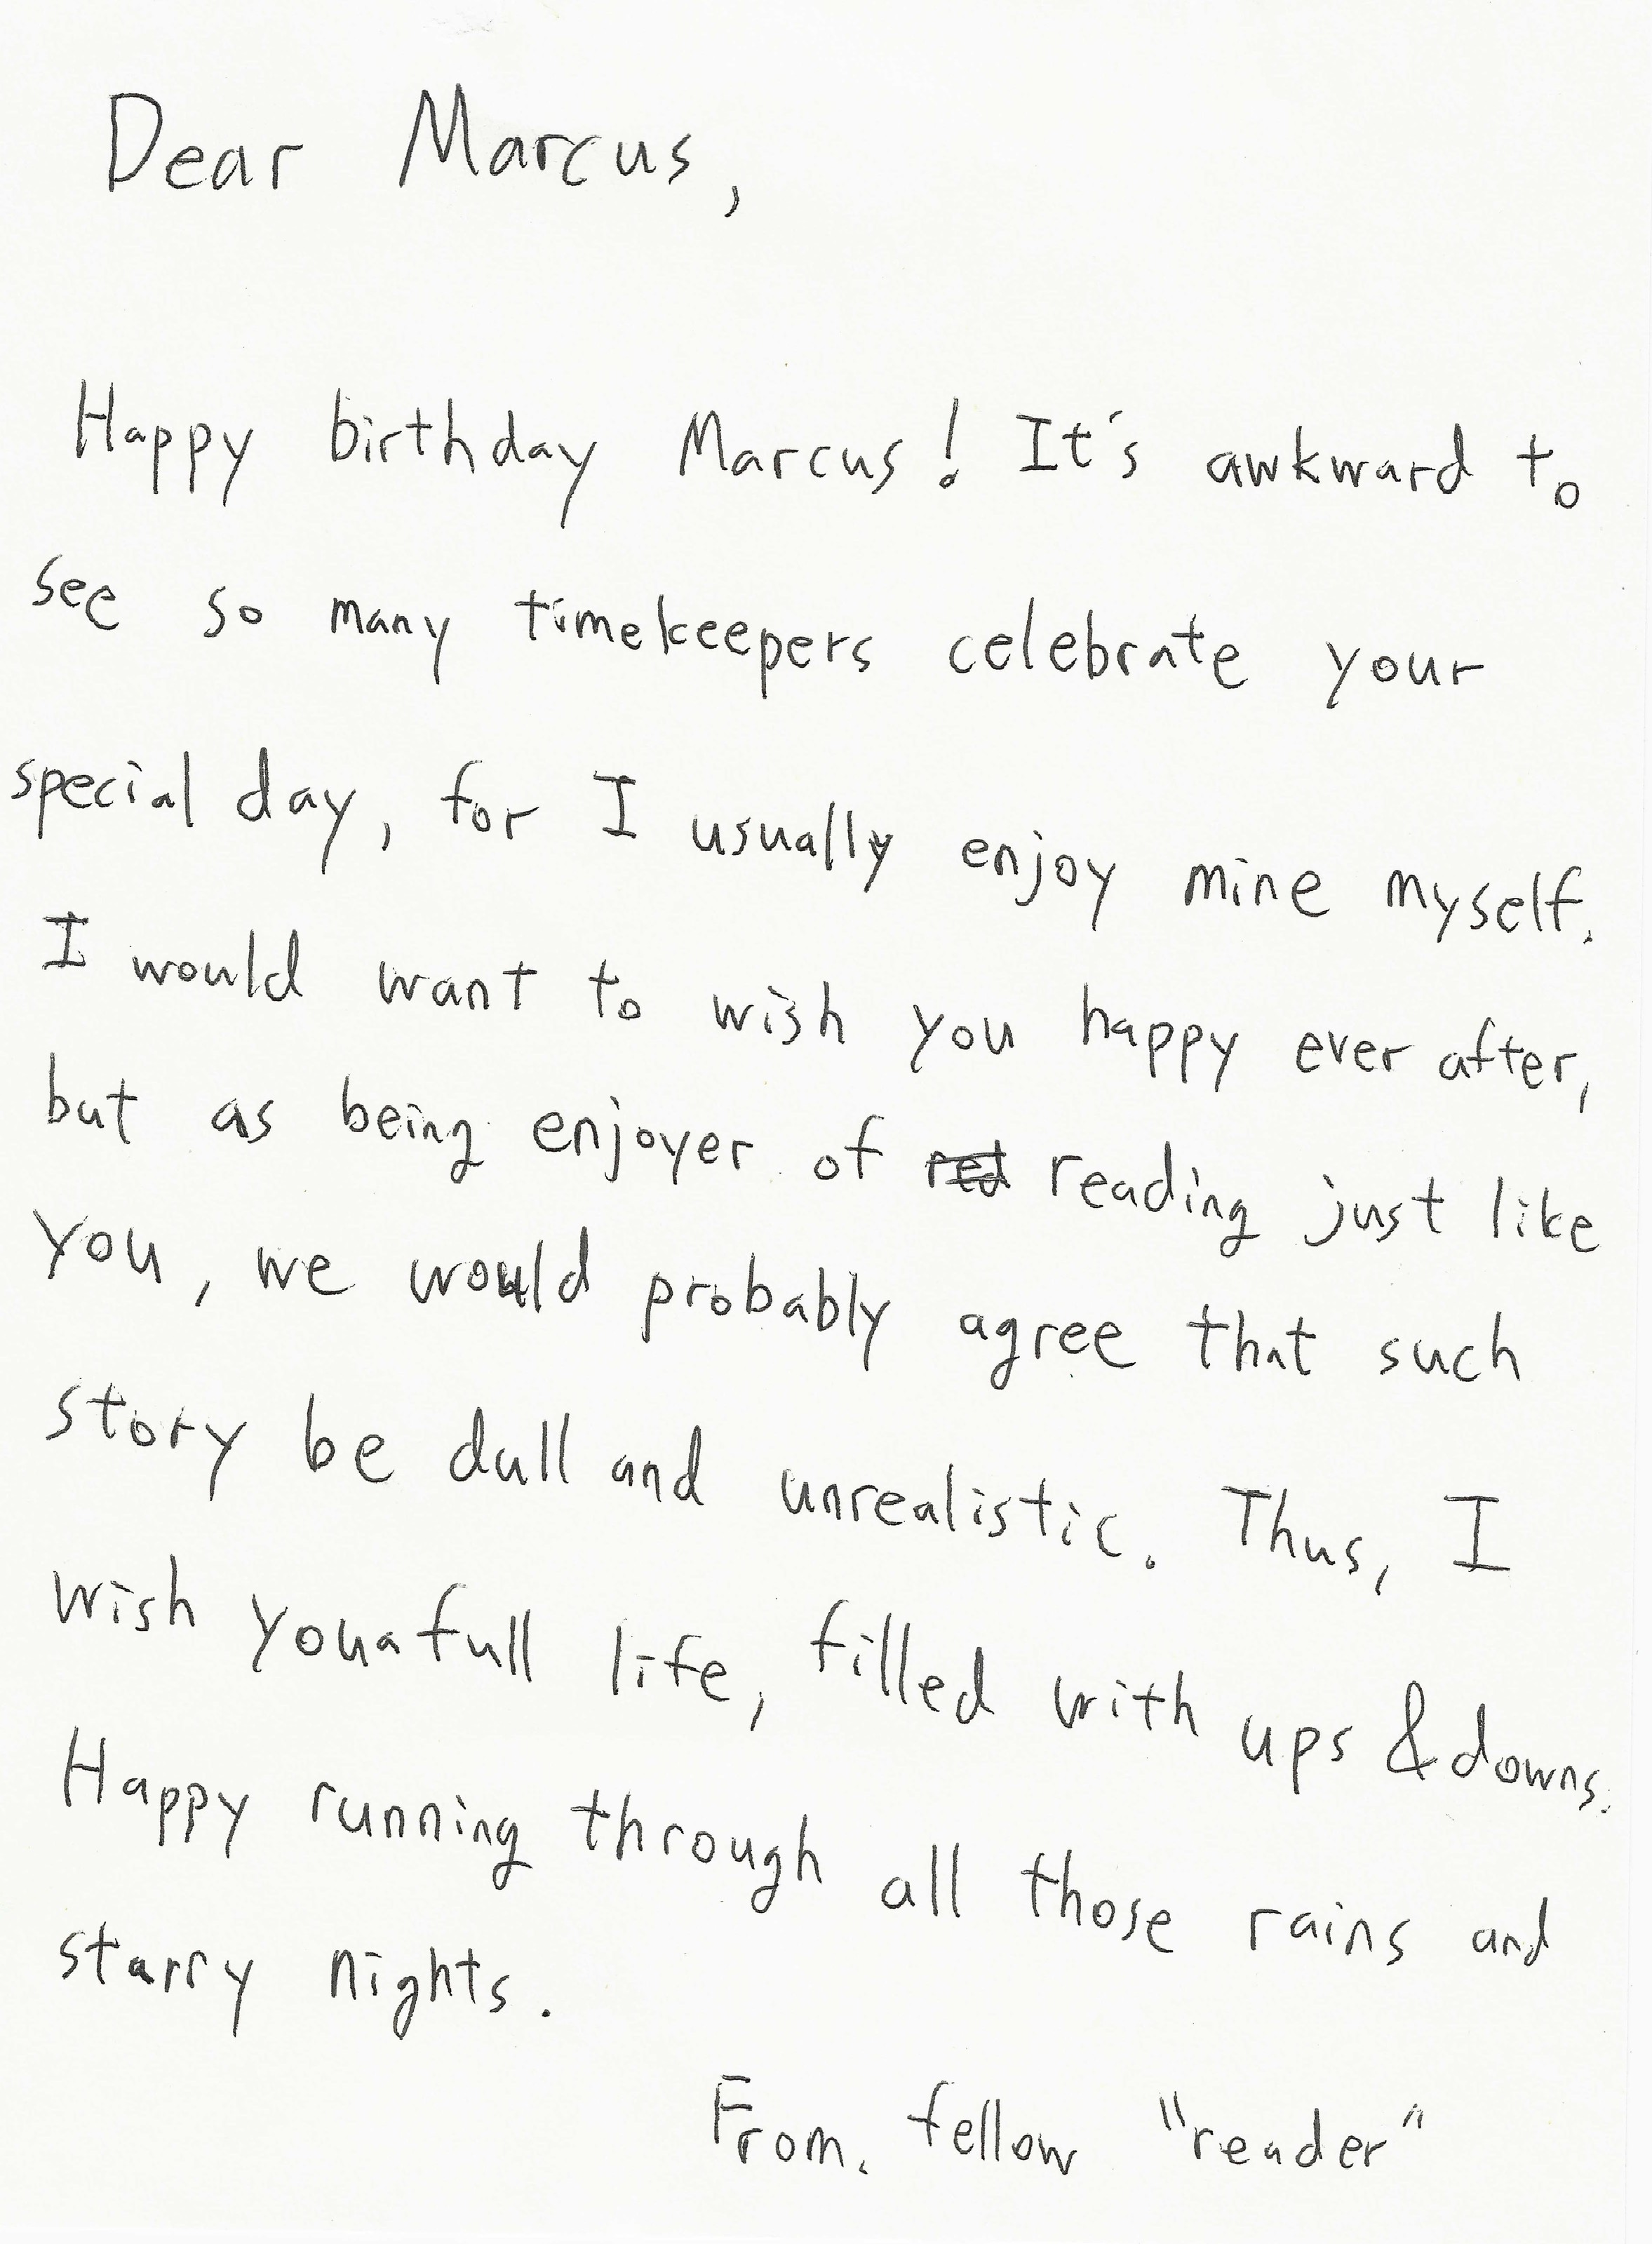 Dear Marcus,
Happy birthday Marcus! It's awkward to
see so many timekeepers celebrate your
special day, for I usually enjoy mine myself.
I would want to wish you happy ever after,
but as being enjoyer of red reading just like
you, we would probably agree that such
story be dull and unrealistic. Thus, I
wish you a full life, filled with ups & downs.
Happy running through all those rains and
starry nights.
From. fellow "reader"